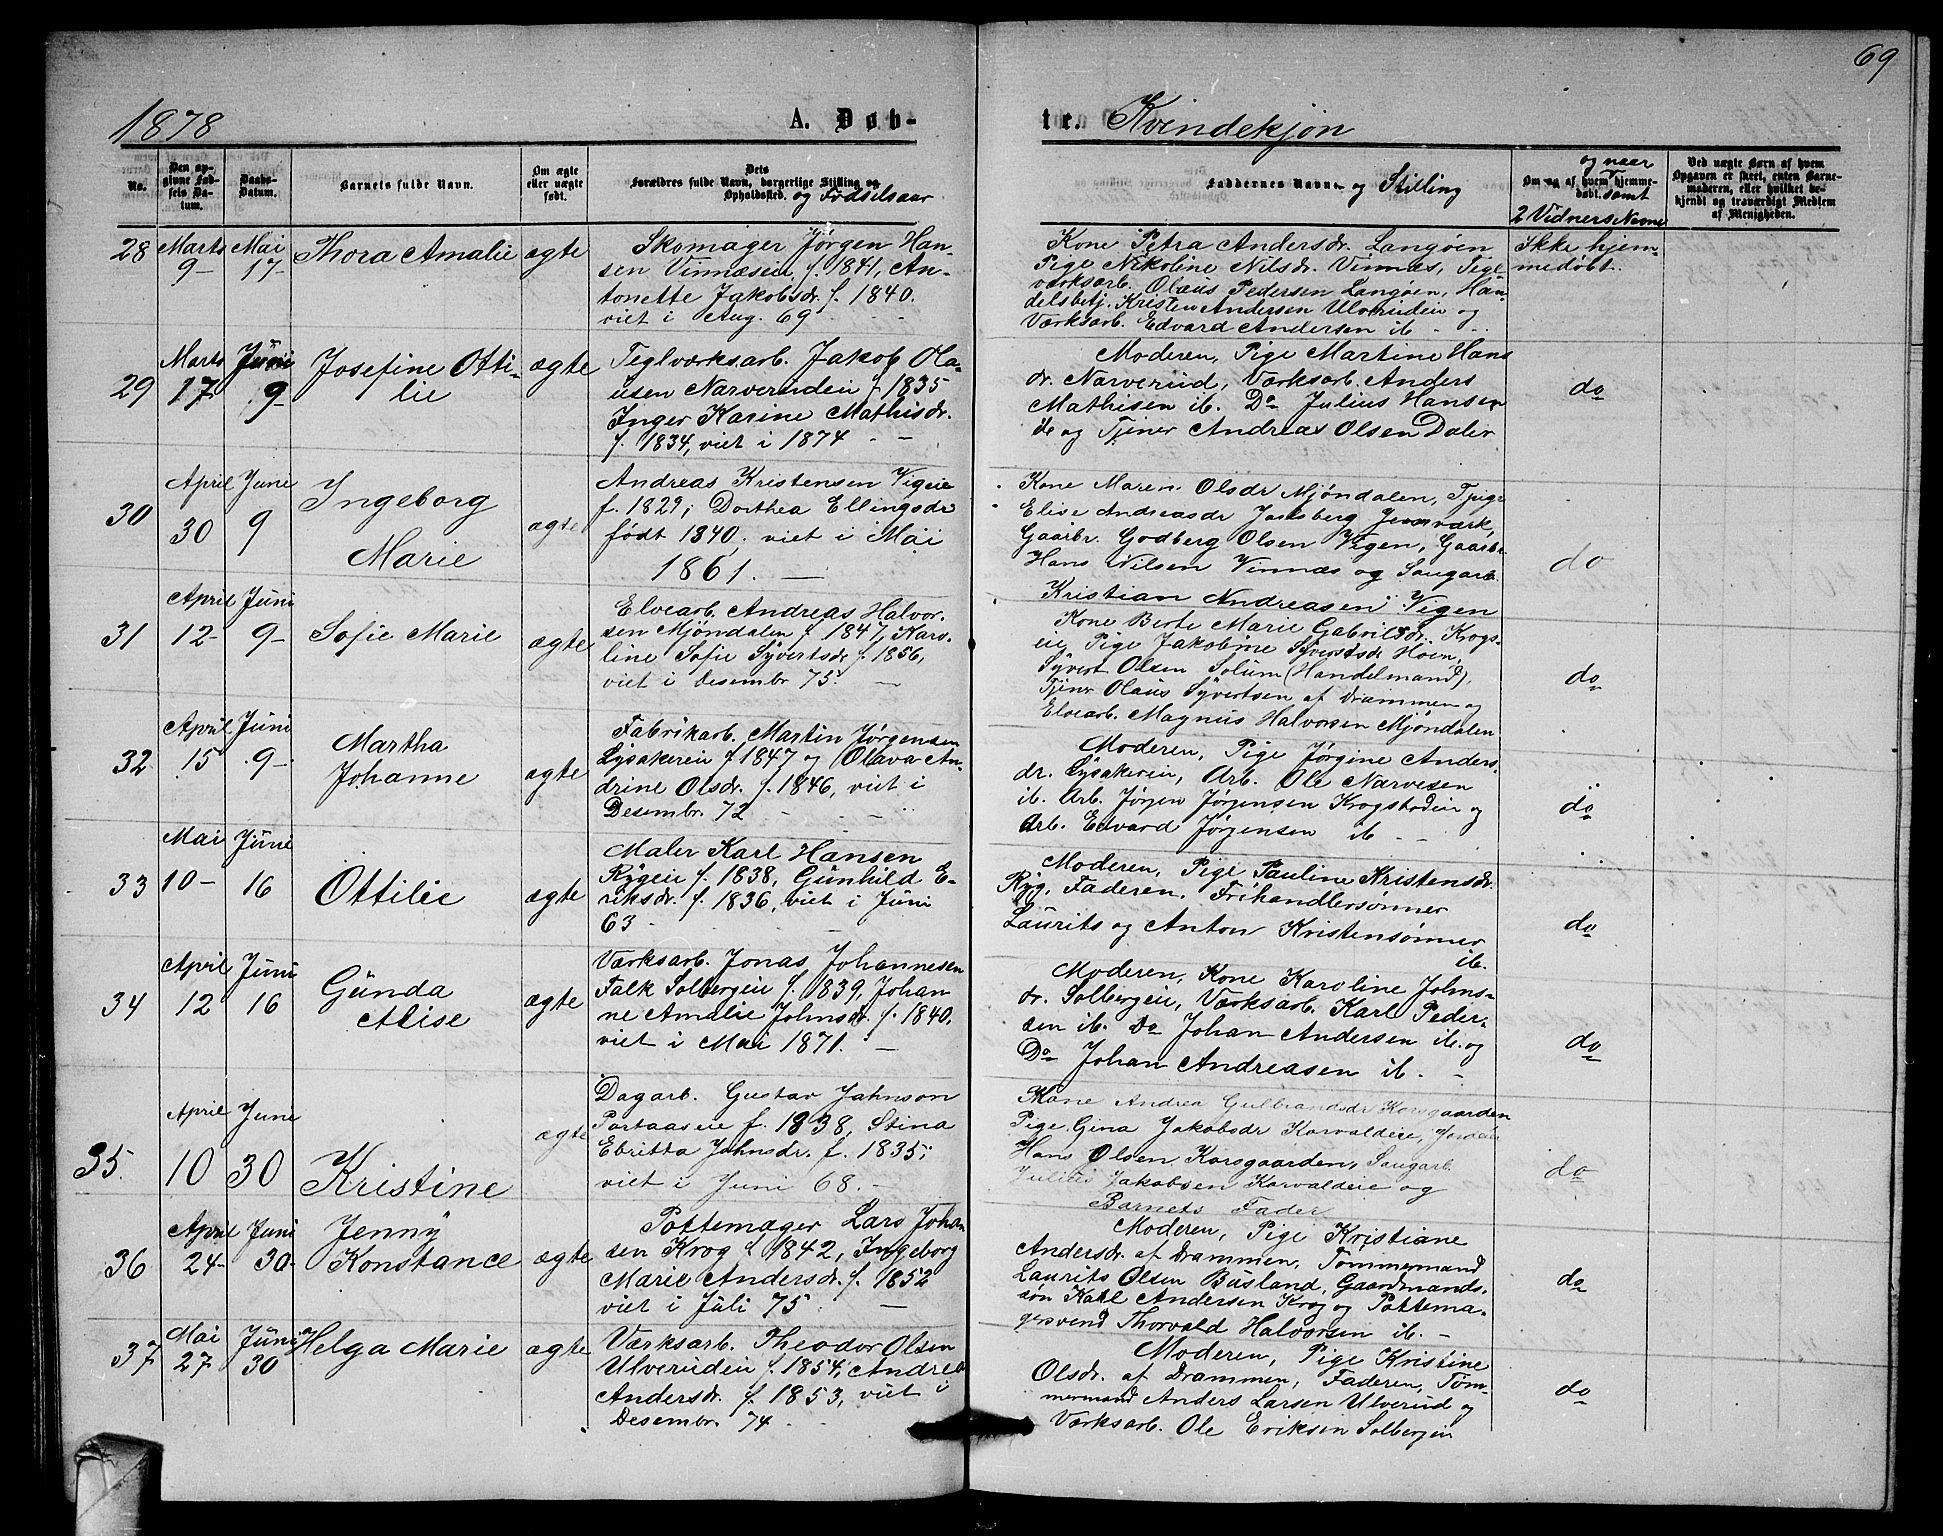 69
1878
A. Døb-
te. Kvindekjøn
No.
Den op-
givne Fød-
sels Da-
tum.
Daabs-
Datum.
Barnets fulde Navn.
Om ægte
eller uægte
født.
Dets
Forældres fulde Navn, borgerlige Stilling og
Opholdssted. og Fødselsaar
Faddernes Navne og Stilling
og naar
Om og af hvem hjemme-
døbt. Samt
2 Vidners Navne
Ved uægte Børn af hvem
Opgaven er skeet, enten Barne-
moderen, eller hvilket be-
kjendt og troværdigt Medlem
af Menigheden.
28
Marts
9-
Mai
17-
Thora Amalie
ægte
Skomager Jørgen Han-
sen Vinnæseie, f. 1841, An-
tonette Jakobsdr. f. 1840.
viet i Aug. 69
Kone Petra Andersdr. Langøen
Pige Nikoline Nilsdr. Vinnæs, Tegl-
værksarb. Olaus Pedersen Langøen, Han-
delsbetj. Kristen Andersen Ulverudeie og
Værksarb. Edvard Andersen ib.
Ikke hjem-
medøbt.
29
Marts
17
Juni
9-
Josefine Otti-
lie
ægte
Teglværksarb. Jakob Ola-
usen Narverudeie f. 1835
Inger Karine Mathisdr.
f. 1834, viet i 1874
Moderen, Pige Martine Hans
dr. Narverud, Værksarb. Anders
Mathisen ib. Do Julius Hansen
ib og Tjener Andreas Olsen Daler
do
30
April
30
Juni
9
Ingeborg
Marie
ægte
Andreas Kristensen Vigeie
f. 1829; Dorthea Ellingsdr
født 1840. viet i Mai
1861.
Kone Maren Olsdr Mjøndalen, Pige
Elise Andreasdr Jarlsberg Jernværk,
Gaarbr. Godberg Olsen Vigen, Gaarbr
Hans Nilsen Vinnæs og Saugarb.
Kristian Andreasen Vigen
do
31
April
12-
Juni
9-
Sofie Marie
ægte
Elvearb. Andreas Halvor-
sen Mjøndalen f. 1847, Karo-
line Sofie Syvertsdr f. 1856,
viet i Desembr 75.
Kone Berte Marie Gabrilsdr. Krogs-
eie, Pige Jakobine Syvertsdr Hoen,
Syvert Olsen Solum (Handelmand),
Tjener Olaus Syvertsen af Drammen og
Elvearb. Magnus Halvorsen Mjøndalen
do
32
April
15
Juni
9-
Martha
Johanne
ægte
Fabrikarb. Martin Jørgensen
Lysakereie f. 1847 og Olava An-
drine Olsdr. f. 1846, viet i
Desembr. 72
Moderen, Pige Jørgine Anders-
dr. Lysakereie, Arb. Ole Narvesen
ib. Arb. Jørgen Jørgensen Krogstadeie og
Arb. Edvard Jørgensen ib
do
33
Mai
10-
Juni
16
Ottilie
ægte
Maler Karl Hansen
Rygeie f. 1838, Gunhild E-
riksdr. f. 1836, viet i Juni
63
Moderen, Pige Pauline Kristensdr.
Ryg, Faderen. Frihandlersønner
Laurits og Anton Kristensønner
ib.
do
34
April
12
Juni
16
Gunda
Alise
ægte
Værksarb. Jonas Johannesen
Falk Solbergeie f. 1839, Johan
ne Amalie Johnsdr. f. 1840,
viet i Mai 1871.
Moderen, Kone Karoline Johns-
dr. Solbergeie, Værksarb. Karl Peder-
sen ib. Do Johan Andersen ib. og
Do Johan Andreasen ib.
do
35.
April
10
Juni
30
Kristine
ægte
Dagarb. Gustav Jahnson
Portaaseie f. 1838, Stina
Ebritta Jahnsdr. f. 1835;
viet i Juni 68.
Kone Andrea Gulbrandsdr Korsgaarden
Pige Gina Jakobsdr Korvaldeie,
Hans Olsen Korsgaarden, Saugarb.
Julius Jakobsen Korvaldeie og
Barnets Fader
do
36
April
24-
Juni
30-
Jenny
Konstance
ægte
Pottemager Lars Johan
sen Krog f. 1842, Ingeborg
Marie Andersdr. f. 1852
viet i Juli 75
Moderen, Pige Kristiane
Andersdr. af Drammen, Tømmermand
Laurits Olsen Busland, Gaardmands-
søn Karl Andersen Krog og Pottema-
gersvend Thorvald Halvorsen ib.
do
37
Mai
27
Juni
30
Helga Marie
ægte
Værksarb. Theodor Olsen
Ulverudeie f. 1854; Andrea
Andersdr. f. 1853, viet i
Desembr. 74
Moderen, Pige Kristine
Olsdr. af Drammen, Faderen, Tøm-
mermand Anders Larsen Ulverud og
Værksarb. Ole Eriksen Solbergeie
do